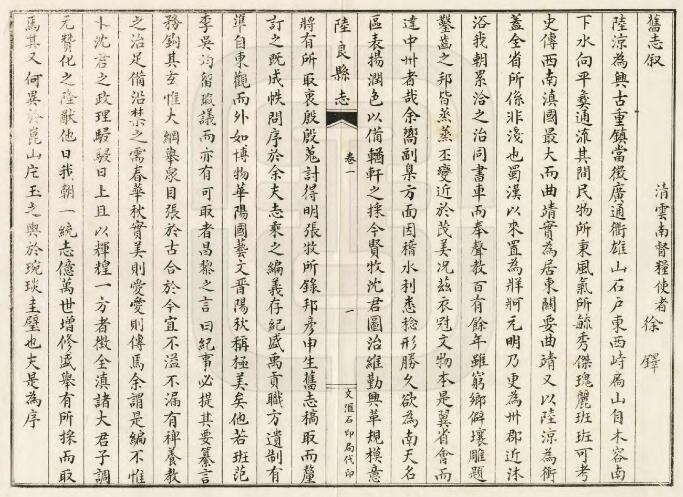 舊志叙
清雲南督糧使者徐鐸
陸涼為興古重鎮當徴廣通衢雄山石戶東西峙扄山自木容南
下水向平彝通流其間民物所東風氣所毓秀傑瑰麗班班可考
史傳西南滇國最大而曲靖實為居東關要曲靖又以陸涼為衝
蓋全省所係非淺也蜀漢以來置為牂牁元明乃更為州郡近沐
浴我朝累洽之治同書車而奉聲教百有餘年雖窮鄉僻壤雕題
鑿齒之邦皆蒸蒸丕變近於茂美况兹衣冠文物本是翼省會而
達中州者哉余嚮副臬方面因稽水利悉稔形勝久欲為南天名
區表揚潤色以備輶軒之採今賢牧沈君圖治維勤興革規模意
陸良縣志
卷一
一
文滙石印局代印
將有所取衷殷殷蒐討得明張牧所錄邦彦申生舊志稿取而釐
訂之既成帙問序於余夫志乘之編義存紀盛禹貢職方遺制有
準自東觀而外如博物華陽國藝文晋陽秋稱極美矣他若班范
李吳均留瑕議而亦有可取者昌黎之言曰紀事必提其要纂言
務鉤其玄惟大綱舉衆目張於古合於今宜不溢不漏有裨養教
之治足備沿禁之需春華秋實美則愛愛則傳焉余謂是編不惟
卜沈君之政理駸駸日上且以輝煌一方者徴全滇諸大君子調
元贊化之隆猷他日我朝一統志億萬世增修盛舉有所採而取
焉其又何異於崑山庀玉之輿於琬琰圭璧也夫是為序